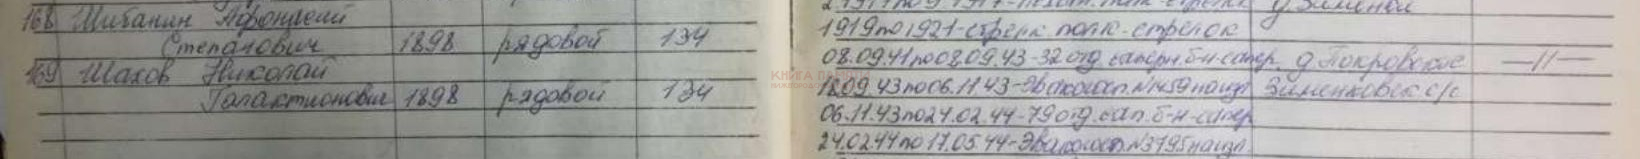 168 Шибанин Афонасий
Степанович 1898 рядовой 134
169 Шахов Николай
Галактионович 1898 рядовой 134
д. Зименки
1919 по 1921 - стрелк. полк - стрелок
08.09.41 по 08.09.43 - 32 отд. саперн. б-н - сапер. д. Покровское —//—
18.09.43 по 06.11.43 - Эвакогосп. №1459 на изл. Зименковск с/с
06.11.43 по 24.02.44 - 79 отд. сап. б-н - сапер
24.02.44 по 17.05.44 - Эвакогосп. №3795 на изл.